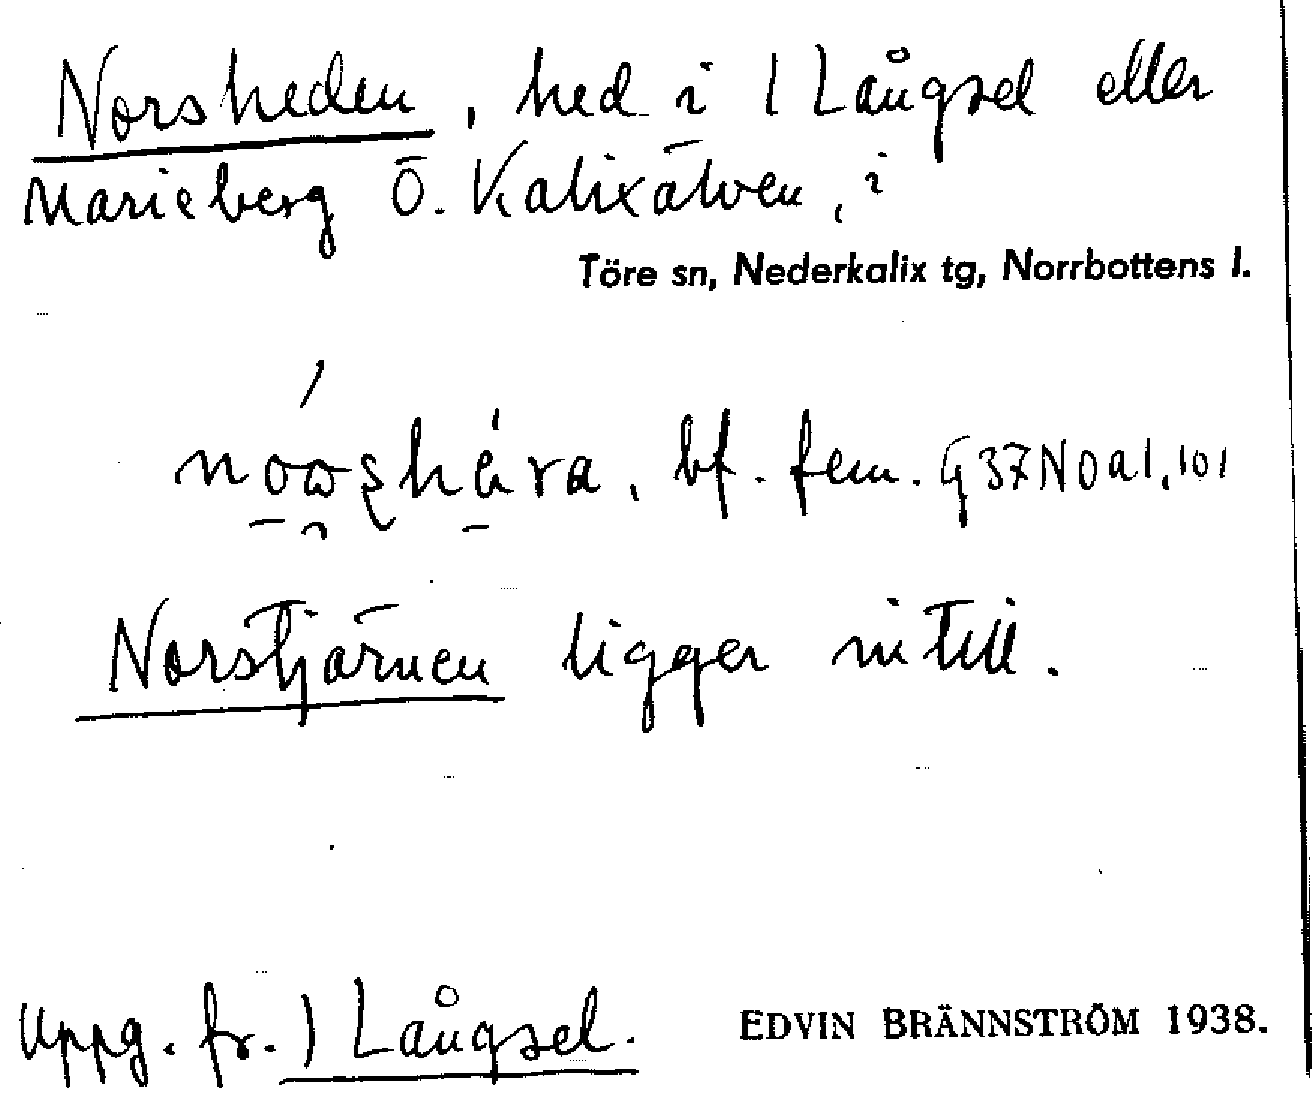 Norsheden, hed i 1 Långsel eller
Marieberg Ö. Kalixälven, i
Töre sn, Nederkalix tg, Norrbottens l.
bf. fem.
Norstjärnen ligger intill.
Uppg. fr. 1 Långsel.
EDVIN BRÄNNSTRÖM 1938.